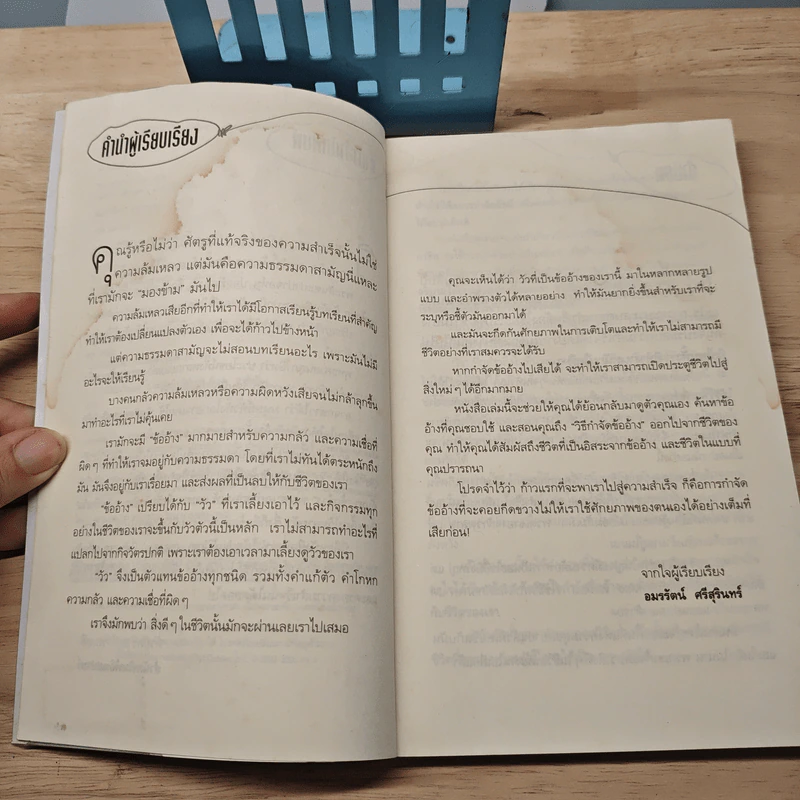 คำนำผู้เรียบเรียง
คุณรู้หรือไม่ว่า ศัตรูที่แท้จริงของความสำเร็จนั้นไม่ใช่
ความล้มเหลว แต่มันคือความธรรมดาสามัญนี่แหละ
ที่เรามักจะ "มองข้าม" มันไป
ความล้มเหลวเสียอีกที่ทำให้เราได้มีโอกาสเรียนรู้บทเรียนที่สำคัญ
ทำให้เราต้องเปลี่ยนแปลงตัวเอง เพื่อจะได้ก้าวไปข้างหน้า
แต่ความธรรมดาสามัญจะไม่สอนบทเรียนอะไร เพราะมันไม่มี
อะไรจะให้เรียนรู้
บางคนกลัวความล้มเหลวหรือความผิดหวังเสียจนไม่กล้าลุกขึ้น
มาทำอะไรที่เราไม่คุ้นเคย
เรามักจะมี "ข้ออ้าง" มากมายสำหรับความกลัว และความเชื่อที่
ผิดๆ ที่ทำให้เราจมอยู่กับความธรรมดา โดยที่เราไม่ทันได้ตระหนักถึง
มัน มันจึงอยู่กับเราเรื่อยมา และส่งผลที่เป็นลบให้กับชีวิตของเรา
"ข้ออ้าง" เปรียบได้กับ "วัว" ที่เราเลี้ยงเอาไว้ และกิจกรรมทุก
อย่างในชีวิตของเราจะขึ้นกับวัวตัวนี้เป็นหลัก เราไม่สามารถทำอะไรที่
แปลกไปจากกิจวัตรปกติ เพราะเราต้องเอาเวลามาเลี้ยงดูวัวของเรา
"วัว" จึงเป็นตัวแทนข้ออ้างทุกชนิด รวมทั้งคำแก้ตัว คำโกหก
ความกลัว และความเชื่อที่ผิดๆ
เราจึงมักพบว่า สิ่งดีๆ ในชีวิตนั้นมักจะผ่านเลยเราไปเสมอ
คุณจะเห็นได้ว่า วัวที่เป็นข้ออ้างของเรานี้ มาในหลากหลายรูป
แบบ และอำพรางตัวได้หลายอย่าง ทำให้มันยากยิ่งขึ้นสำหรับเราที่จะ
ระบุหรือชี้ตัวมันออกมาได้
และมันจะกีดกันศักยภาพในการเติบโตและทำให้เราไม่สามารถมี
ชีวิตอย่างที่เราสมควรจะได้รับ
หากกำจัดข้ออ้างไปเสียได้ จะทำให้เราสามารถเปิดประตูชีวิตไปสู่
สิ่งใหม่ๆ ได้อีกมากมาย
หนังสือเล่มนี้จะช่วยให้คุณได้ย้อนกลับมาดูตัวคุณเอง ค้นหาข้อ
อ้างที่คุณชอบใช้ และสอนคุณถึง "วิธีกำจัดข้ออ้าง" ออกไปจากชีวิตของ
คุณ ทำให้คุณได้สัมผัสถึงชีวิตที่เป็นอิสระจากข้ออ้าง และชีวิตในแบบที่
คุณปรารถนา
โปรดจำไว้ว่า ก้าวแรกที่จะพาเราไปสู่ความสำเร็จ ก็คือการกำจัด
ข้ออ้างที่จะคอยกีดขวางไม่ให้เราใช้ศักยภาพของตนเองได้อย่างเต็มที่
เสียก่อน!
จากใจผู้เรียบเรียง
อมรรัตน์ ศรีสุรินทร์